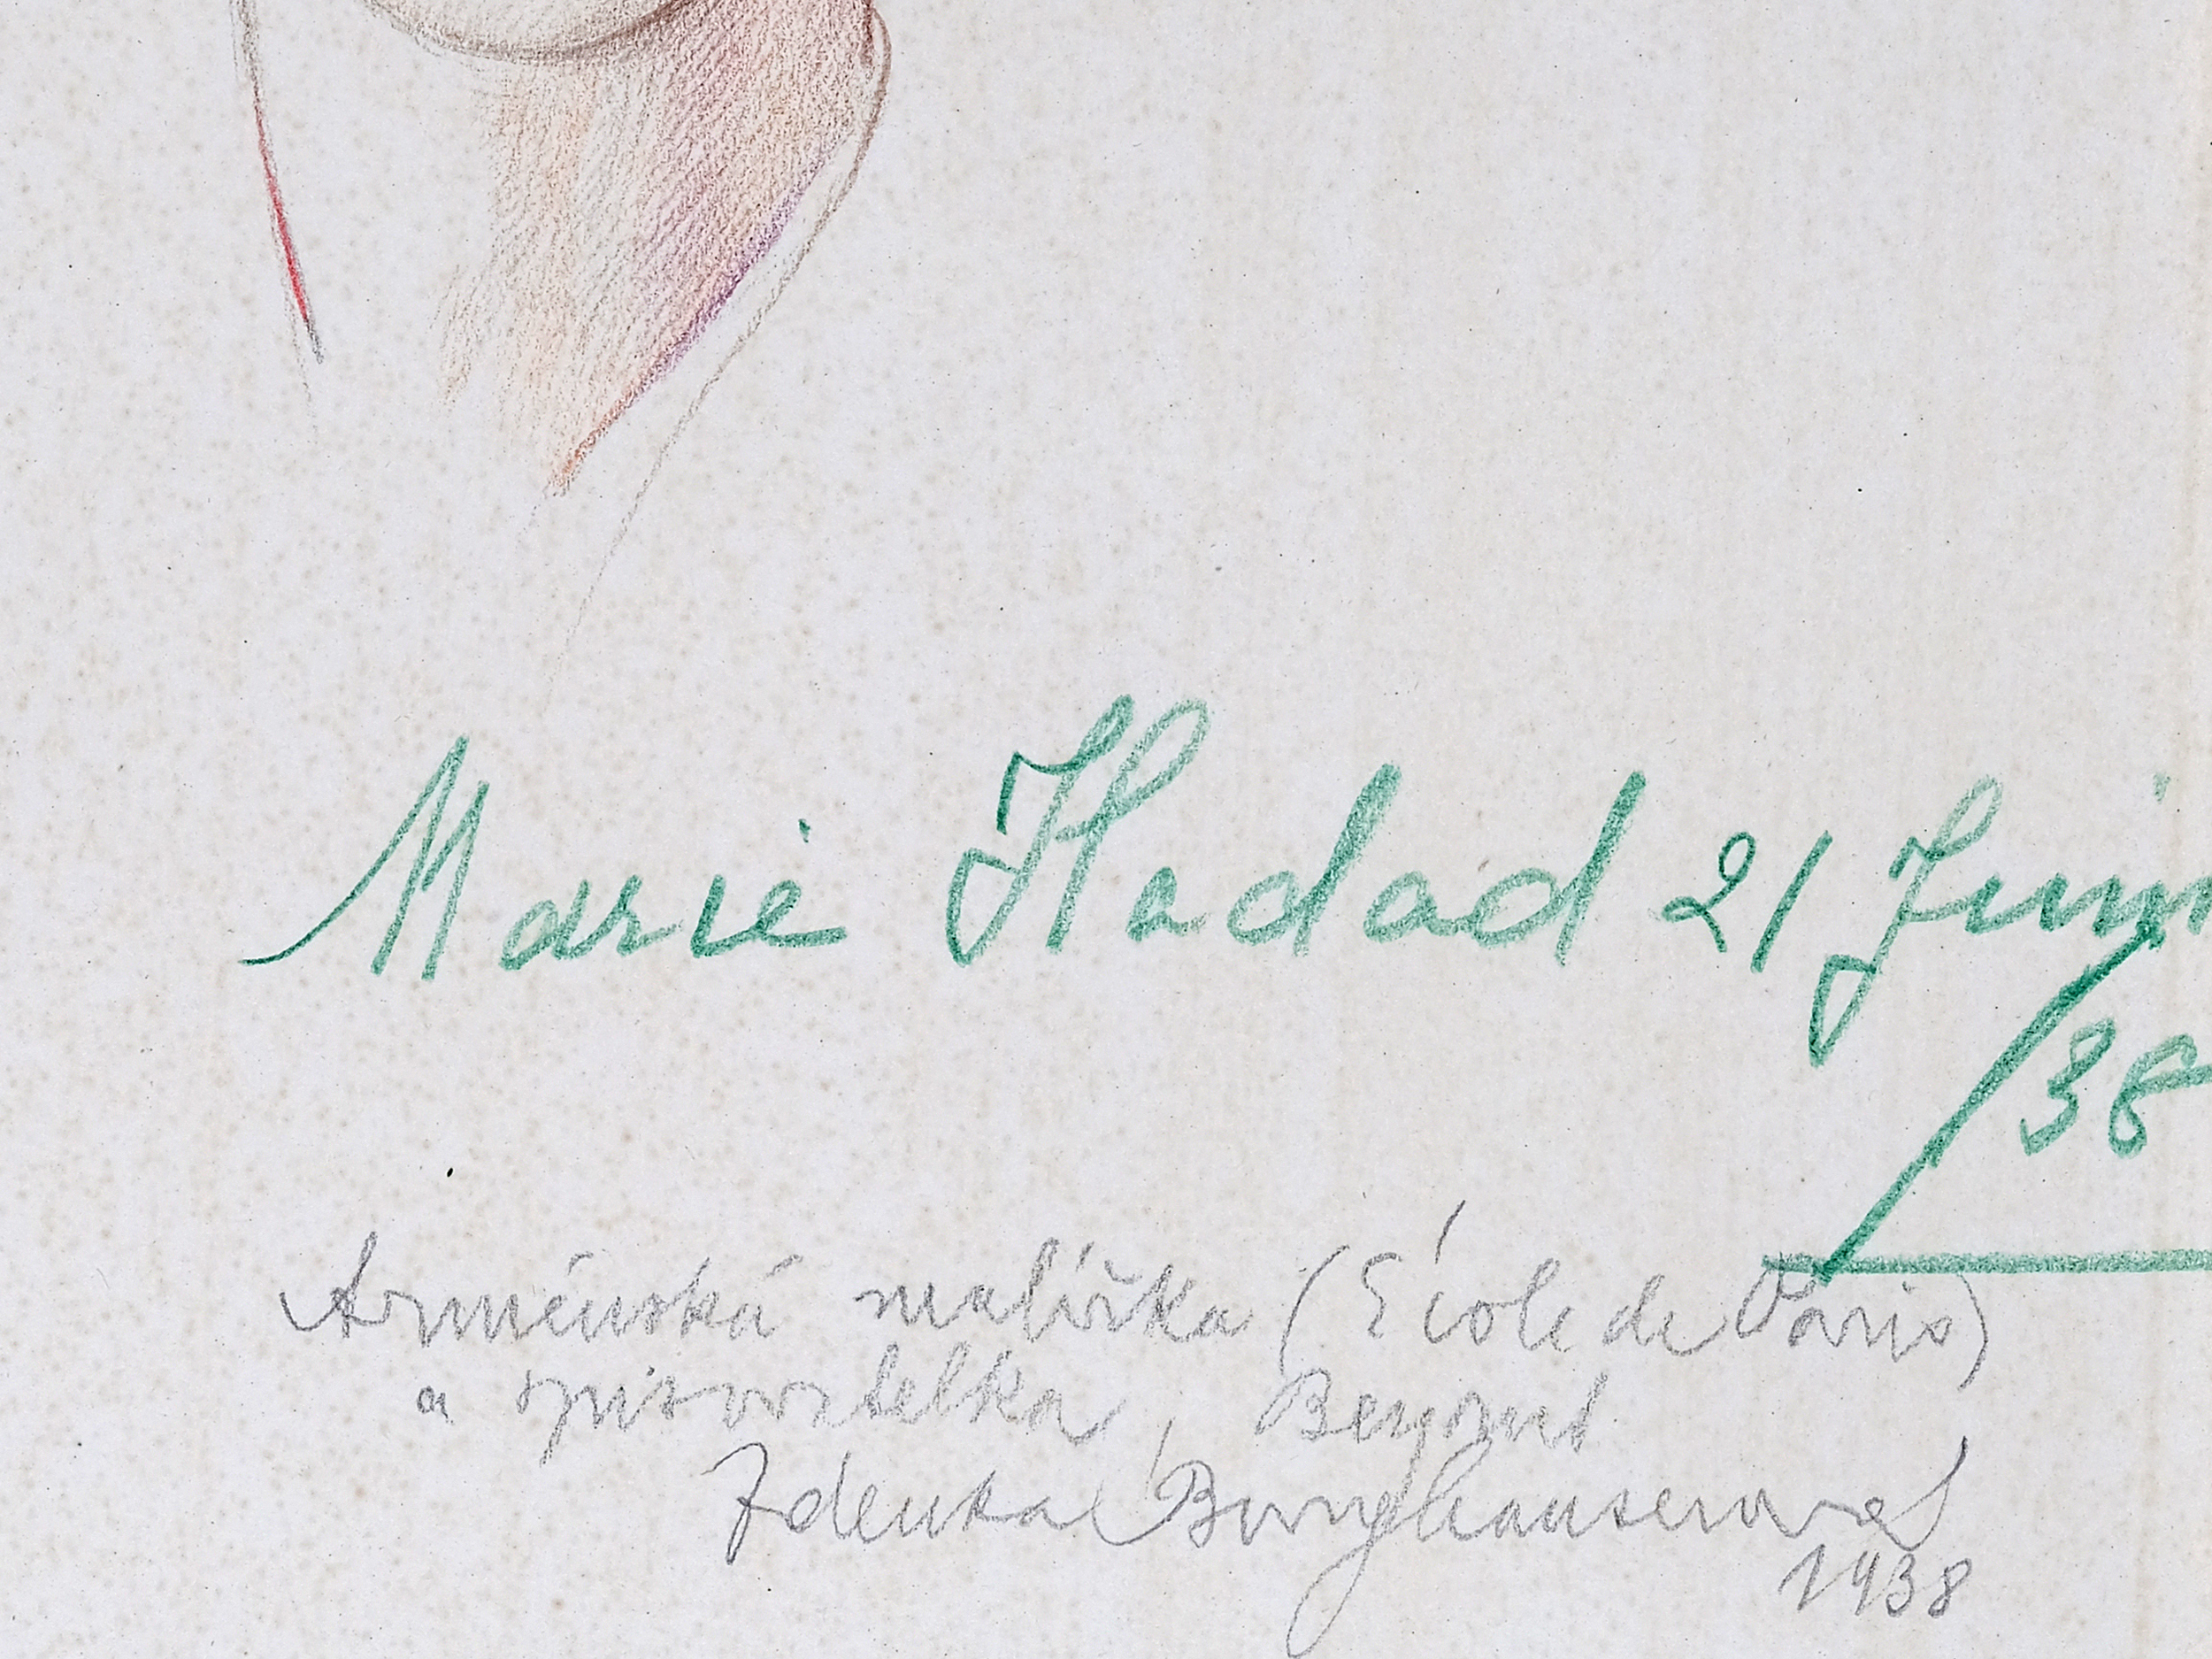 Marie Hadad 21 Juin
/38
Arménská malířka (École de Paris)
a spisovatelka, Beyrout
Zdenka Burghauserová
1938